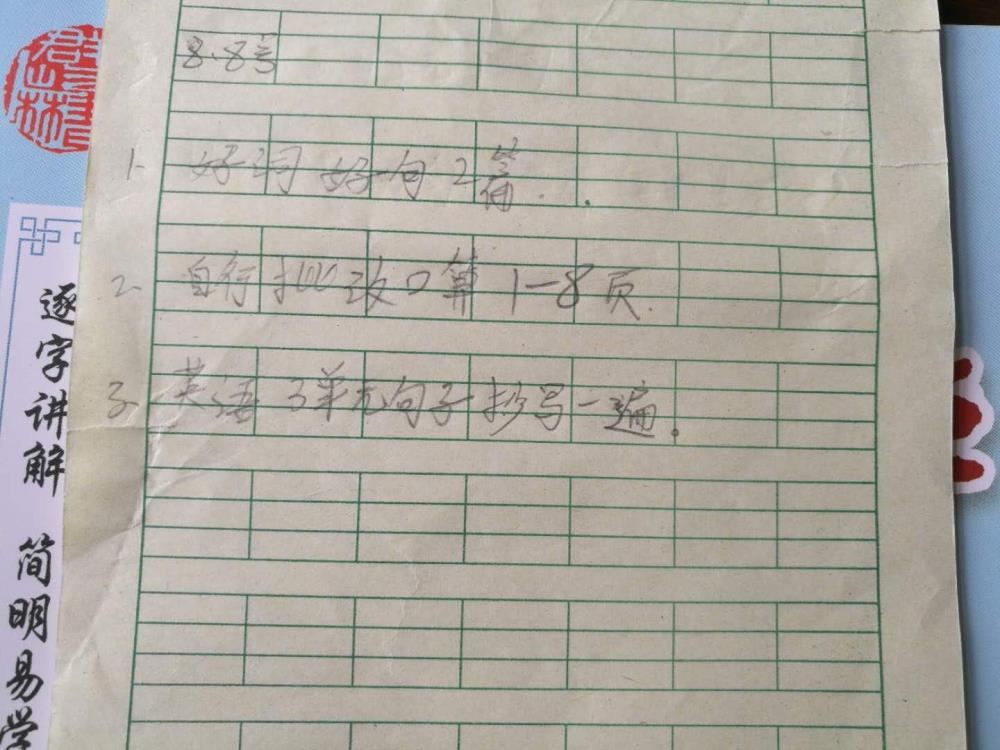 8.8号
1. 好词好句2篇.
2. 自行批改口算1-8页.
3. 英语3单元句子抄写一遍。
逐字讲解 简明易学